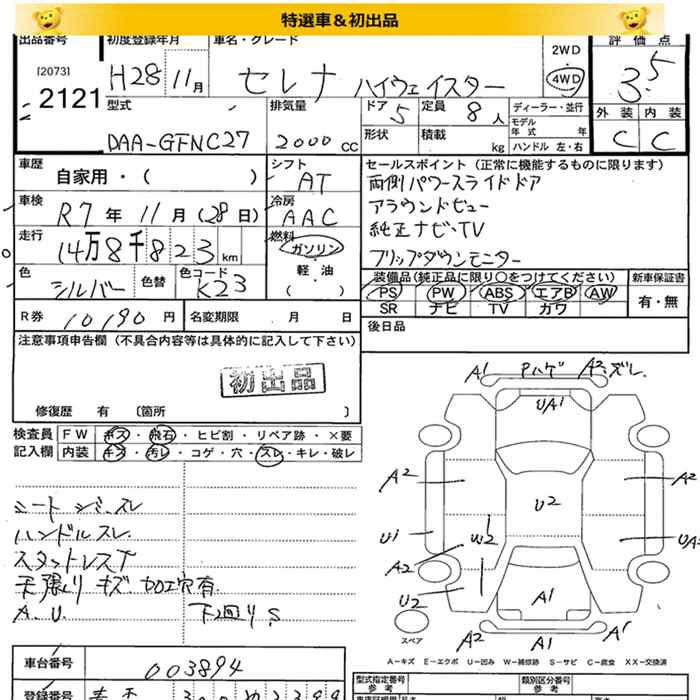 特選車＆初出品
出品番号 初度登録年月 車名・グレード 2WD 評価点
[2073] 2121 H28 11月 セレナ ハイウェイスター 4WD 3.5
型式 排気量 ドア 5 定員 8人 ディーラー・並行 外装 内装
モデル年式 年式
DAA-GFNC27 2000CC 形状 積載 kg ハンドル 左・右 C C
車歴 シフト セールスポイント（正常に機能するものに限ります）
自家用・( ) AT 両側パワースライドドア
車検 冷房 アラウンドビュー
R7年 11月 (28日) AAC 純正ナビ・TV
走行 燃料
14万8千823km ガソリン フリップダウンモニター
色 色替 色コード 軽油 装備品（純正品に限り○をつけてください） 新車保証書
シルバー K23 ( ) PS PW ABS エアB AW 有・無
SR ナビ TV カワ
R券 10190円 名変期限 月 日 後日品
注意事項申告欄（不具合内容等は具体的に記入して下さい）
初出品
修復歴 有 〔箇所 〕
検査員 FW キズ・飛石・ヒビ割・リペア跡・×要
記入欄 内装 キズ・汚レ・コゲ・穴・スレ・キレ・破レ
シート シミ、スレ
ハンドルスレ
スタットレスT
天張りキズ 加工穴有
A.U. 下廻りS
A1 Pハゲ A2、ズレ
UA1
A2 A2
U2
U1 W2 UA
A2
U2 A1
A2 A1 A1
スペア
A－キズ E－エクボ U－凹み W－補修跡 S－サビ C－腐食 XX－交換済
車台番号 003894 型式指定番号 参考 類別区分番号 参考
登録番号